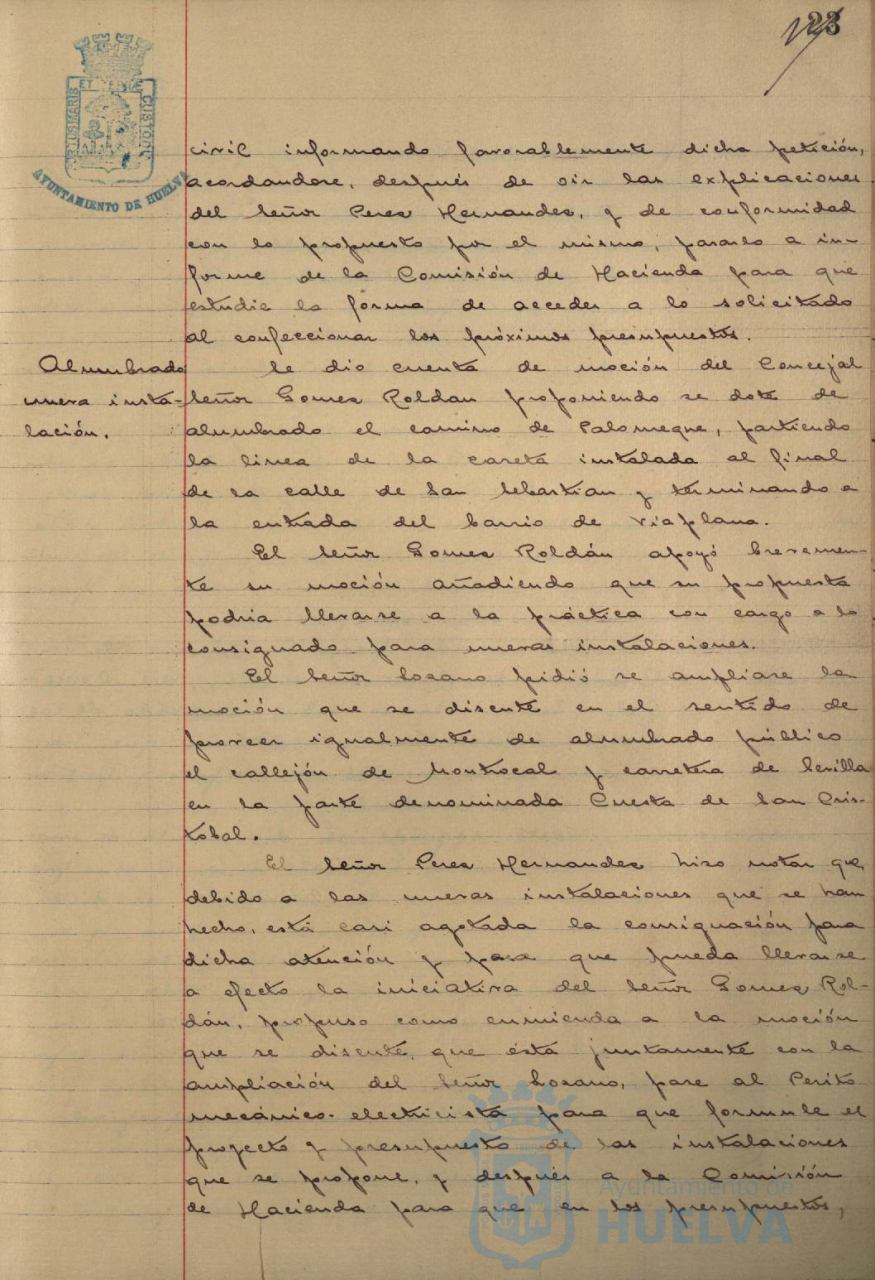 23
PORTUS MARIS ET TERRE CUSTODIA
AYUNTAMIENTO DE HUELVA
civil informando favorablemente dicha petición,
acordandose, después de oir las explicaciones
del Señor Perez Hernandez, y de conformidad
con lo propuesto por el mismo, pasarlo a in-
forme de la Comisión de Hacienda para que
estudie la forma de acceder a lo solicitado
al confeccionar los próximos presupuestos.
Alumbrado
nueva insta-
lación.
Se dio cuenta de moción del Concejal
Señor Gomez Roldan proponiendo se dote de
alumbrado el camino de Palomeque, partiendo
la linea de la careta instalada al final
de la calle de San Sebastian y terminando a
la entrada del barrio de Viaplana.
El Señor Gomez Roldán apoyó brevemen-
te su moción añadiendo que su propuesta
podria llevarse a la práctica con cargo a lo
consignado para nuevas instalaciones.
El Señor Lozano pidió se ampliase la
moción que se discute en el sentido de
proveer igualmente de alumbrado público
el callejón de Montrocal y carretera de Sevilla
en la parte denominada Cuesta de San Cris-
tobal.
El Señor Perez Hernandez hizo notar que,
debido a las nuevas instalaciones que se han
hecho, está casi agotada la consignación para
dicha atención y para que pueda llevarse
a efecto la iniciativa del Señor Gomez Rol-
dán, propuso como enmienda a la moción
que se discute, que ésta juntamente con la
ampliación del Señor Lozano, pase al Perito
mecánico-electricista para que formule el
proyecto y presupuesto de las instalaciones
que se propone, y después a la Comisión
de Hacienda para que en los presupuestos,
Ayuntamiento de
HUELVA